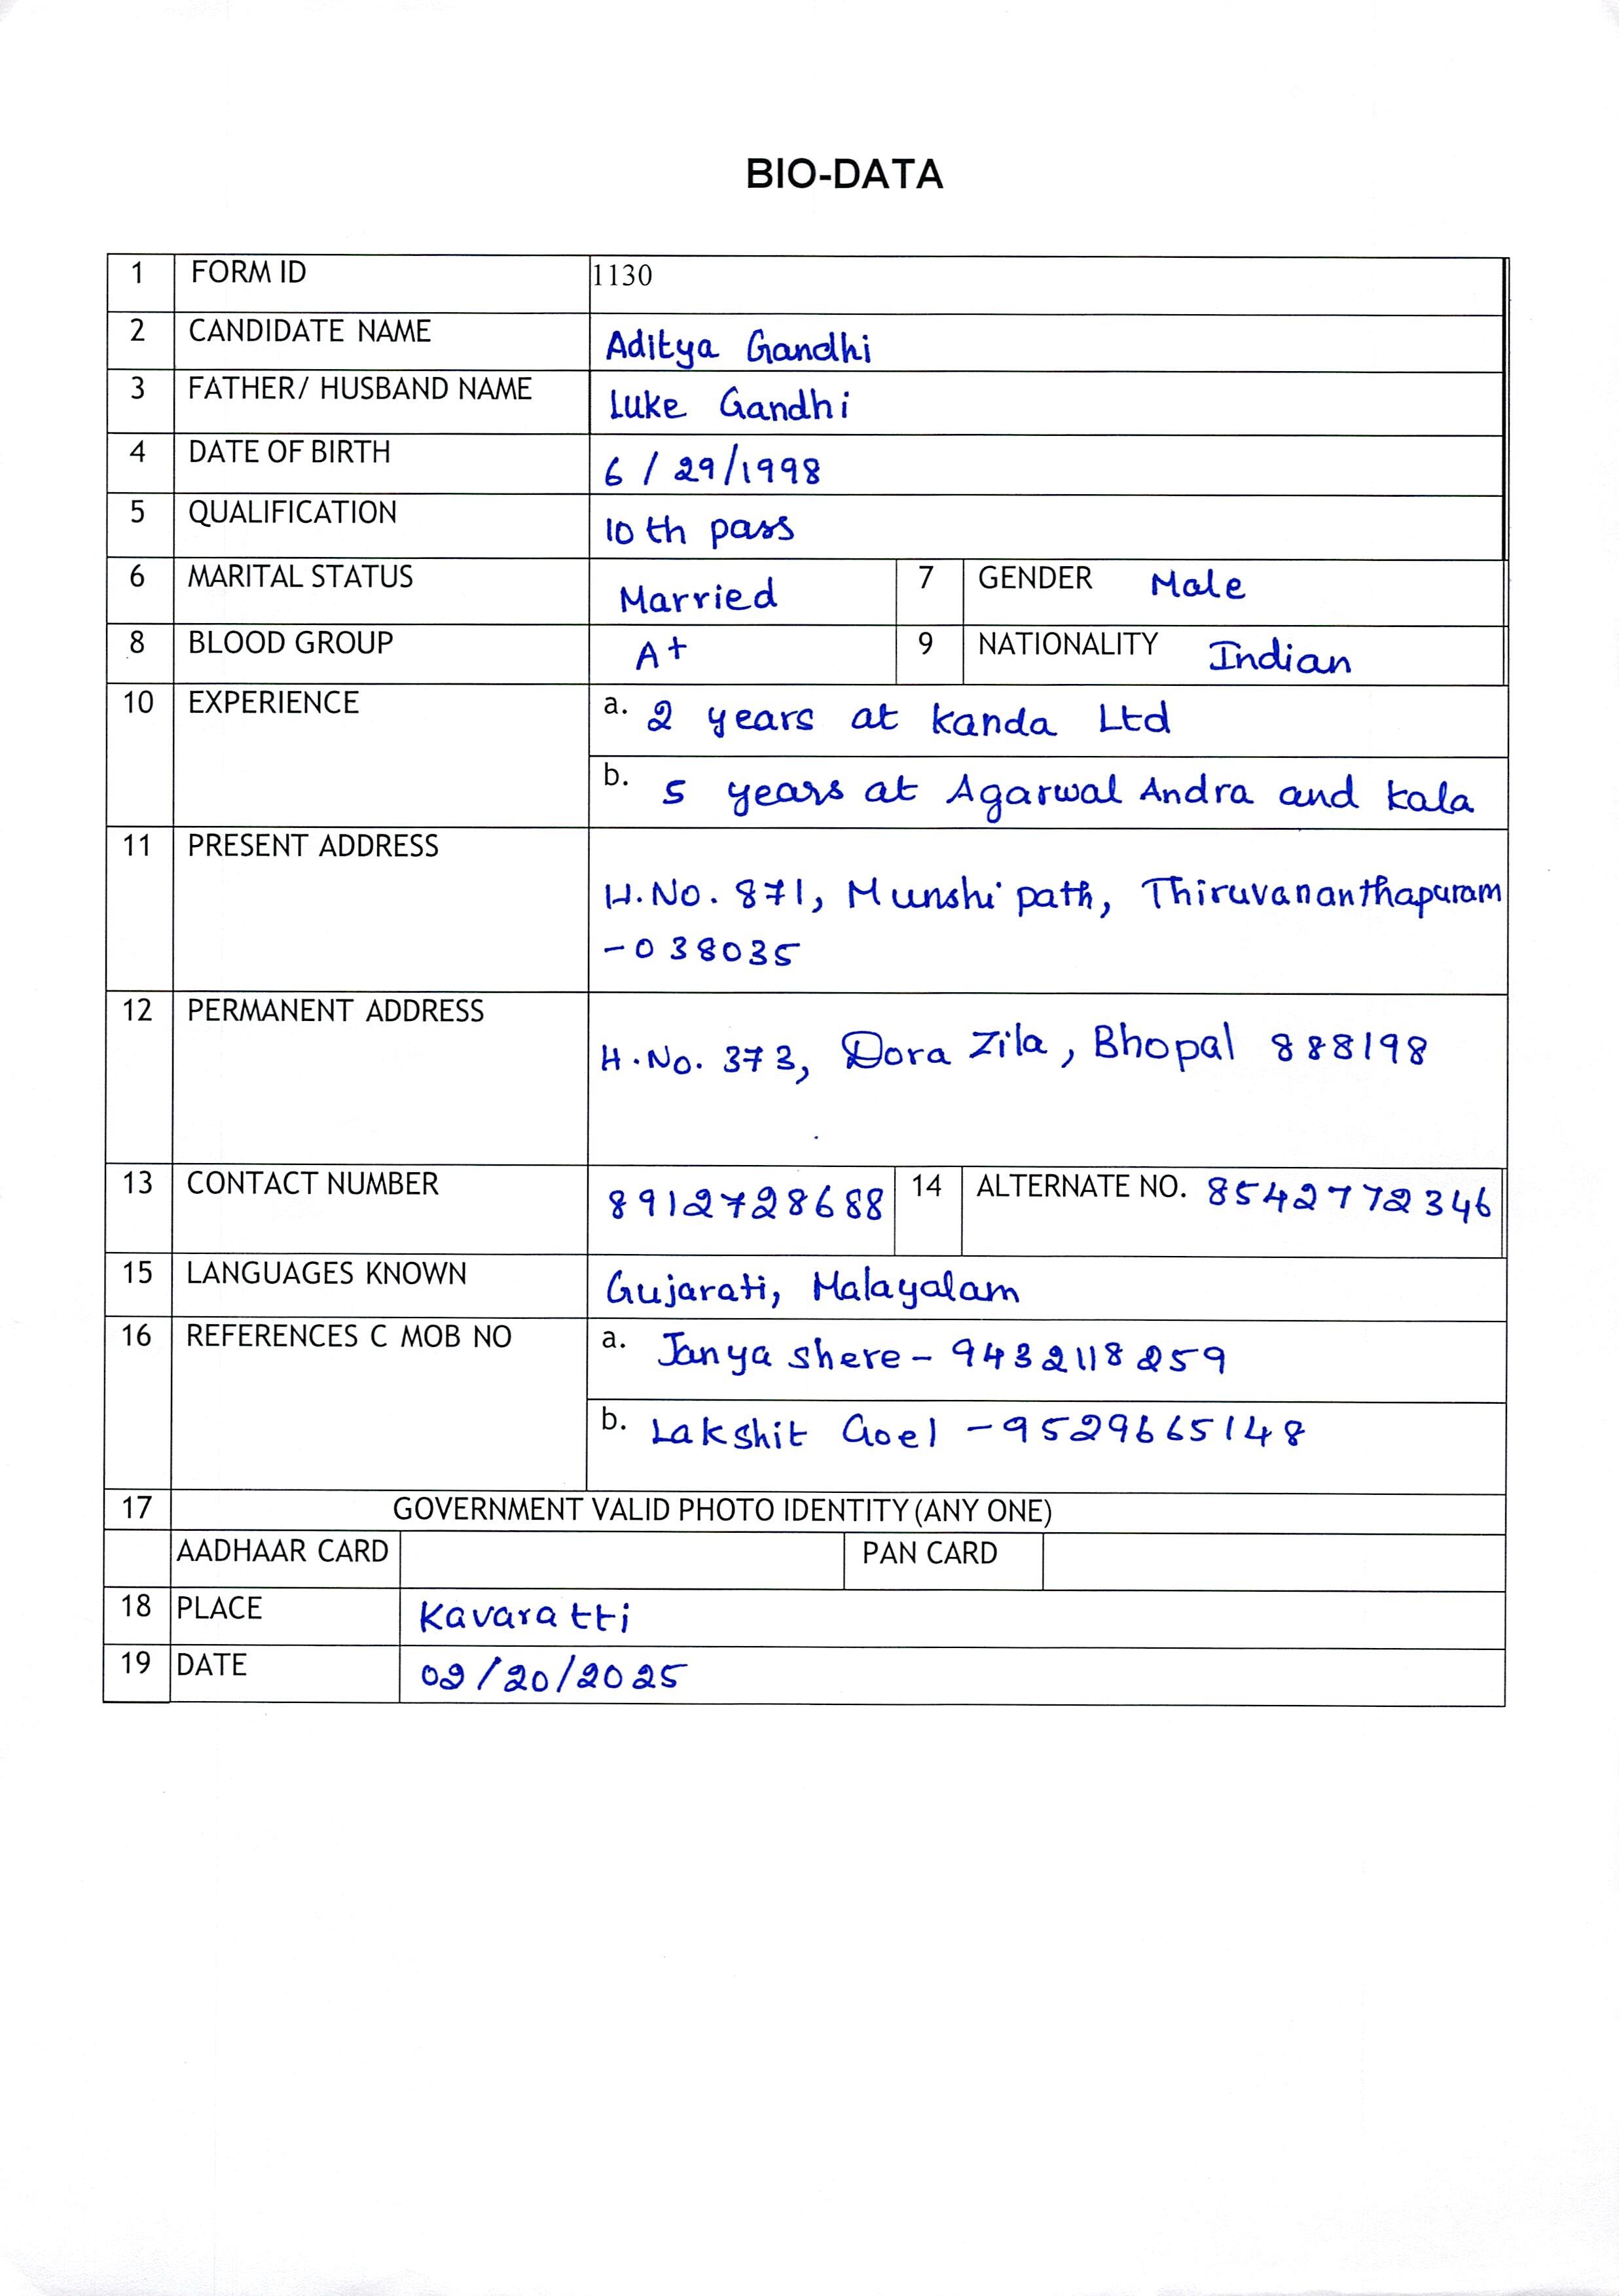 BIO-DATA
1 FORM ID 1130
2 CANDIDATE NAME Aditya Gandhi
3 FATHER/ HUSBAND NAME Luke Gandhi
4 DATE OF BIRTH 6 / 29/1998
5 QUALIFICATION 10th pass
6 MARITAL STATUS Married 7 GENDER Male
8 BLOOD GROUP A+ 9 NATIONALITY Indian
10 EXPERIENCE a. 2 years at Kanda Ltd
b. 5 years at Agarwal Andra and Kala
11 PRESENT ADDRESS
H.No. 871, Munshi path, Thiruvananthapuram
-038035
12 PERMANENT ADDRESS
H.No. 373, Dora Zila, Bhopal 888198
13 CONTACT NUMBER 8912728688 14 ALTERNATE NO. 8542772346
15 LANGUAGES KNOWN Gujarati, Malayalam
16 REFERENCES C MOB NO a. Janya shere - 9432118259
b. Lakshit Goel - 9529665148
17 GOVERNMENT VALID PHOTO IDENTITY (ANY ONE)
AADHAAR CARD PAN CARD
18 PLACE Kavaratti
19 DATE 02/20/2025